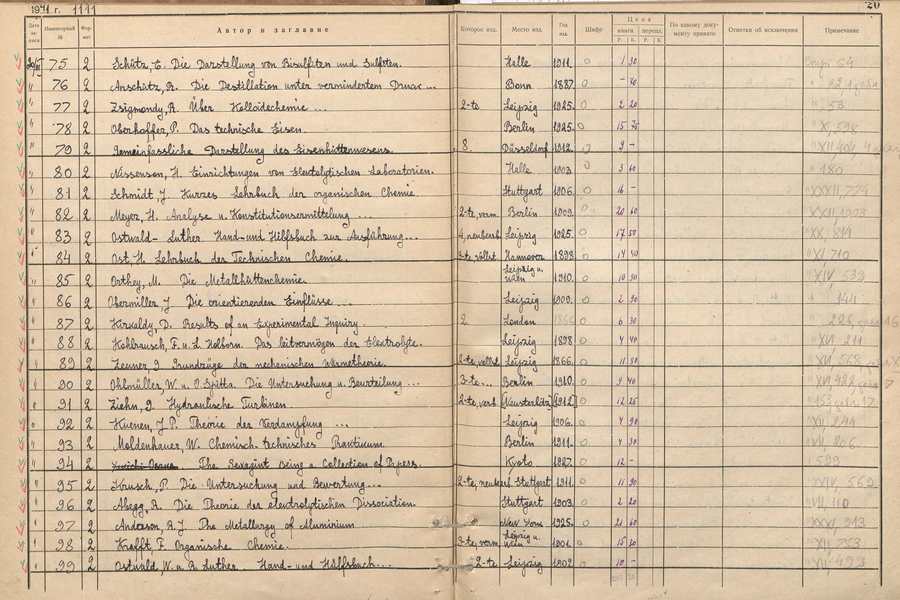 1941 г. 1111
20
Дата записи Инвентарный № Формат Автор и заглавие Которое изд. Место изд. Год изд. Шифр Цена книги перепл. По какому документу принято Отметки об исключении Примечание
Р. К. Р. К.
75 2 Schütz, E. Die Darstellung von Bisulfiten und Sulfiten. Halle 1911. 0 1 90 54
" 76 2 Anschütz, R. Die Destillation unter vermindertem Druck ... Bonn 1887 0 – 70
" 77 2 Zsigmondy, R. Über Kolloidchemie ... 2-te Leipzig 1925. 0 2 20 " 53
" 78 2 Oberhoffer, P. Das technische Eisen. Berlin 1925. 0 15 75 " XI, 598
" 79 2 Gemeinfassliche Darstellung des Eisenhüttenwesens. 8. Düsseldorf 1912. 0 9 –
" 80 2 Nissenson, H. Einrichtungen von Elektolytischen Laboratorien. Halle 1903. 0 3 60 " 180
" 81 2 Schmidt, J. Kurzes Lehrbuch der organischen Chemie. Stuttgart 1906. 0 16 – " XXXII, 774
" 82 2 Meyer, H. Analyse u. Konstitutionsermittelung ... 2-te, verm. Berlin 1909. 0 20 60 " XXXII, 1003
" 83 2 Ostwald-Luther. Hand-und Hilfsbuch zur Ausführung... 4, neubearb. Leipzig 1925. 0 17 50 " XX, 814
" 84 2 Ost, H. Lehrbuch der Technischen Chemie. 3-te, völlst. Hannover 1898. 0 14 50 " XI 710
" 85 2 Orthey, M. Die Metallhüttenchemie. Leipzig u. Wien 1910. 0 10 90 " XIV, 539
" 86 2 Obermiller J. Die orientierenden Einflüsse ... Leipzig 1909. 0 2 90 " 144
" 87 2 Kirvaldy, D. Results of an Experimental Inquiry. 2 London 0 6 30
" 88 2 Kohlrausch, F. u. L. Holborn. Das leitvermögen der Elektrolyte. Leipzig 1898 0 4 40 " XVI 211
" 89 2 Zeuner, G Grundzüge der mechanischen Wärmetheorie. 2-te, vollst. Leipzig 1866. 0 11 50 " XVI, 568
" 90 2 Ohlmüller, W. u O. Spitta. Die Untersuchung u. Beurteilung ... 3-te... Berlin 1910. 0 9 40
" 91 2 Ziehn, G Hydraulische Turbinen 2-te, verb. [Neusterlitz] [1912] 0 12 25
" 92 2 Kuenen, J P. Theorie der Verdampfung ... Leipzig 1906. 0 4 90
" 93 2 Moldenhauer, W. Chemisch-technisches Praktikum. Berlin 1911. 0 4 30 " XII, 206
" 94 2 The Sexagint Being a Collection of Papers. Kyoto 1927. 0 12 – " 589
" 95 2 Krusch, P Die Untersuchung und Bewertung... 2-te, neubearb. Stuttgart 1911. 0 11 90 " XXIV, 569
" 96 2 Abegg, R. Die Theorie der elektrolytischen Dissociation. Stuttgart 1903. 0 2 20 " VII, 110
" 97 2 Anderson, R. J. The Metallurgy of Aluminium New York 1925. 0 21 60 " XXXI, 913
" 98 2 Krafft, F Organische Chemie. 3-te, verm. Leipzig u. Wien 1901. 0 15 20 " XII, 753
" 99 2 Ostwald, W. u. R. Luther. Hand- und Hülfsbuch... 2-te Leipzig 1902. 0 10 – " XII, 492